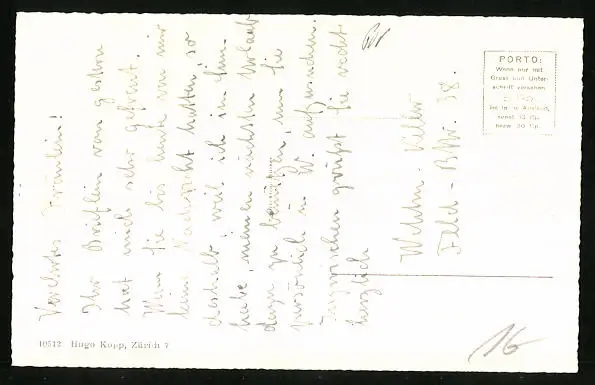 Verehrtes Fräulein!
Ihr Brieflein von gestern
hat mich sehr gefreut.
Wenn Sie bis heute von mir
keine Nachricht hatten, so
deshalb, weil ich im Sinn
habe, meinen nächsten Urlaub
dazu zu benützen, um Sie
persönlich in W. aufzusuchen.
Inzwischen grüsst Sie recht
herzlich
Wehrm. Keller
Feld-Bttr. 38.
PORTO:
Wenn nur mit
Gruss und Unter-
schrift versehen
sonst 10 Rp.
bezw. 20 Rp.
10512 Hugo Kopp, Zürich 7
16